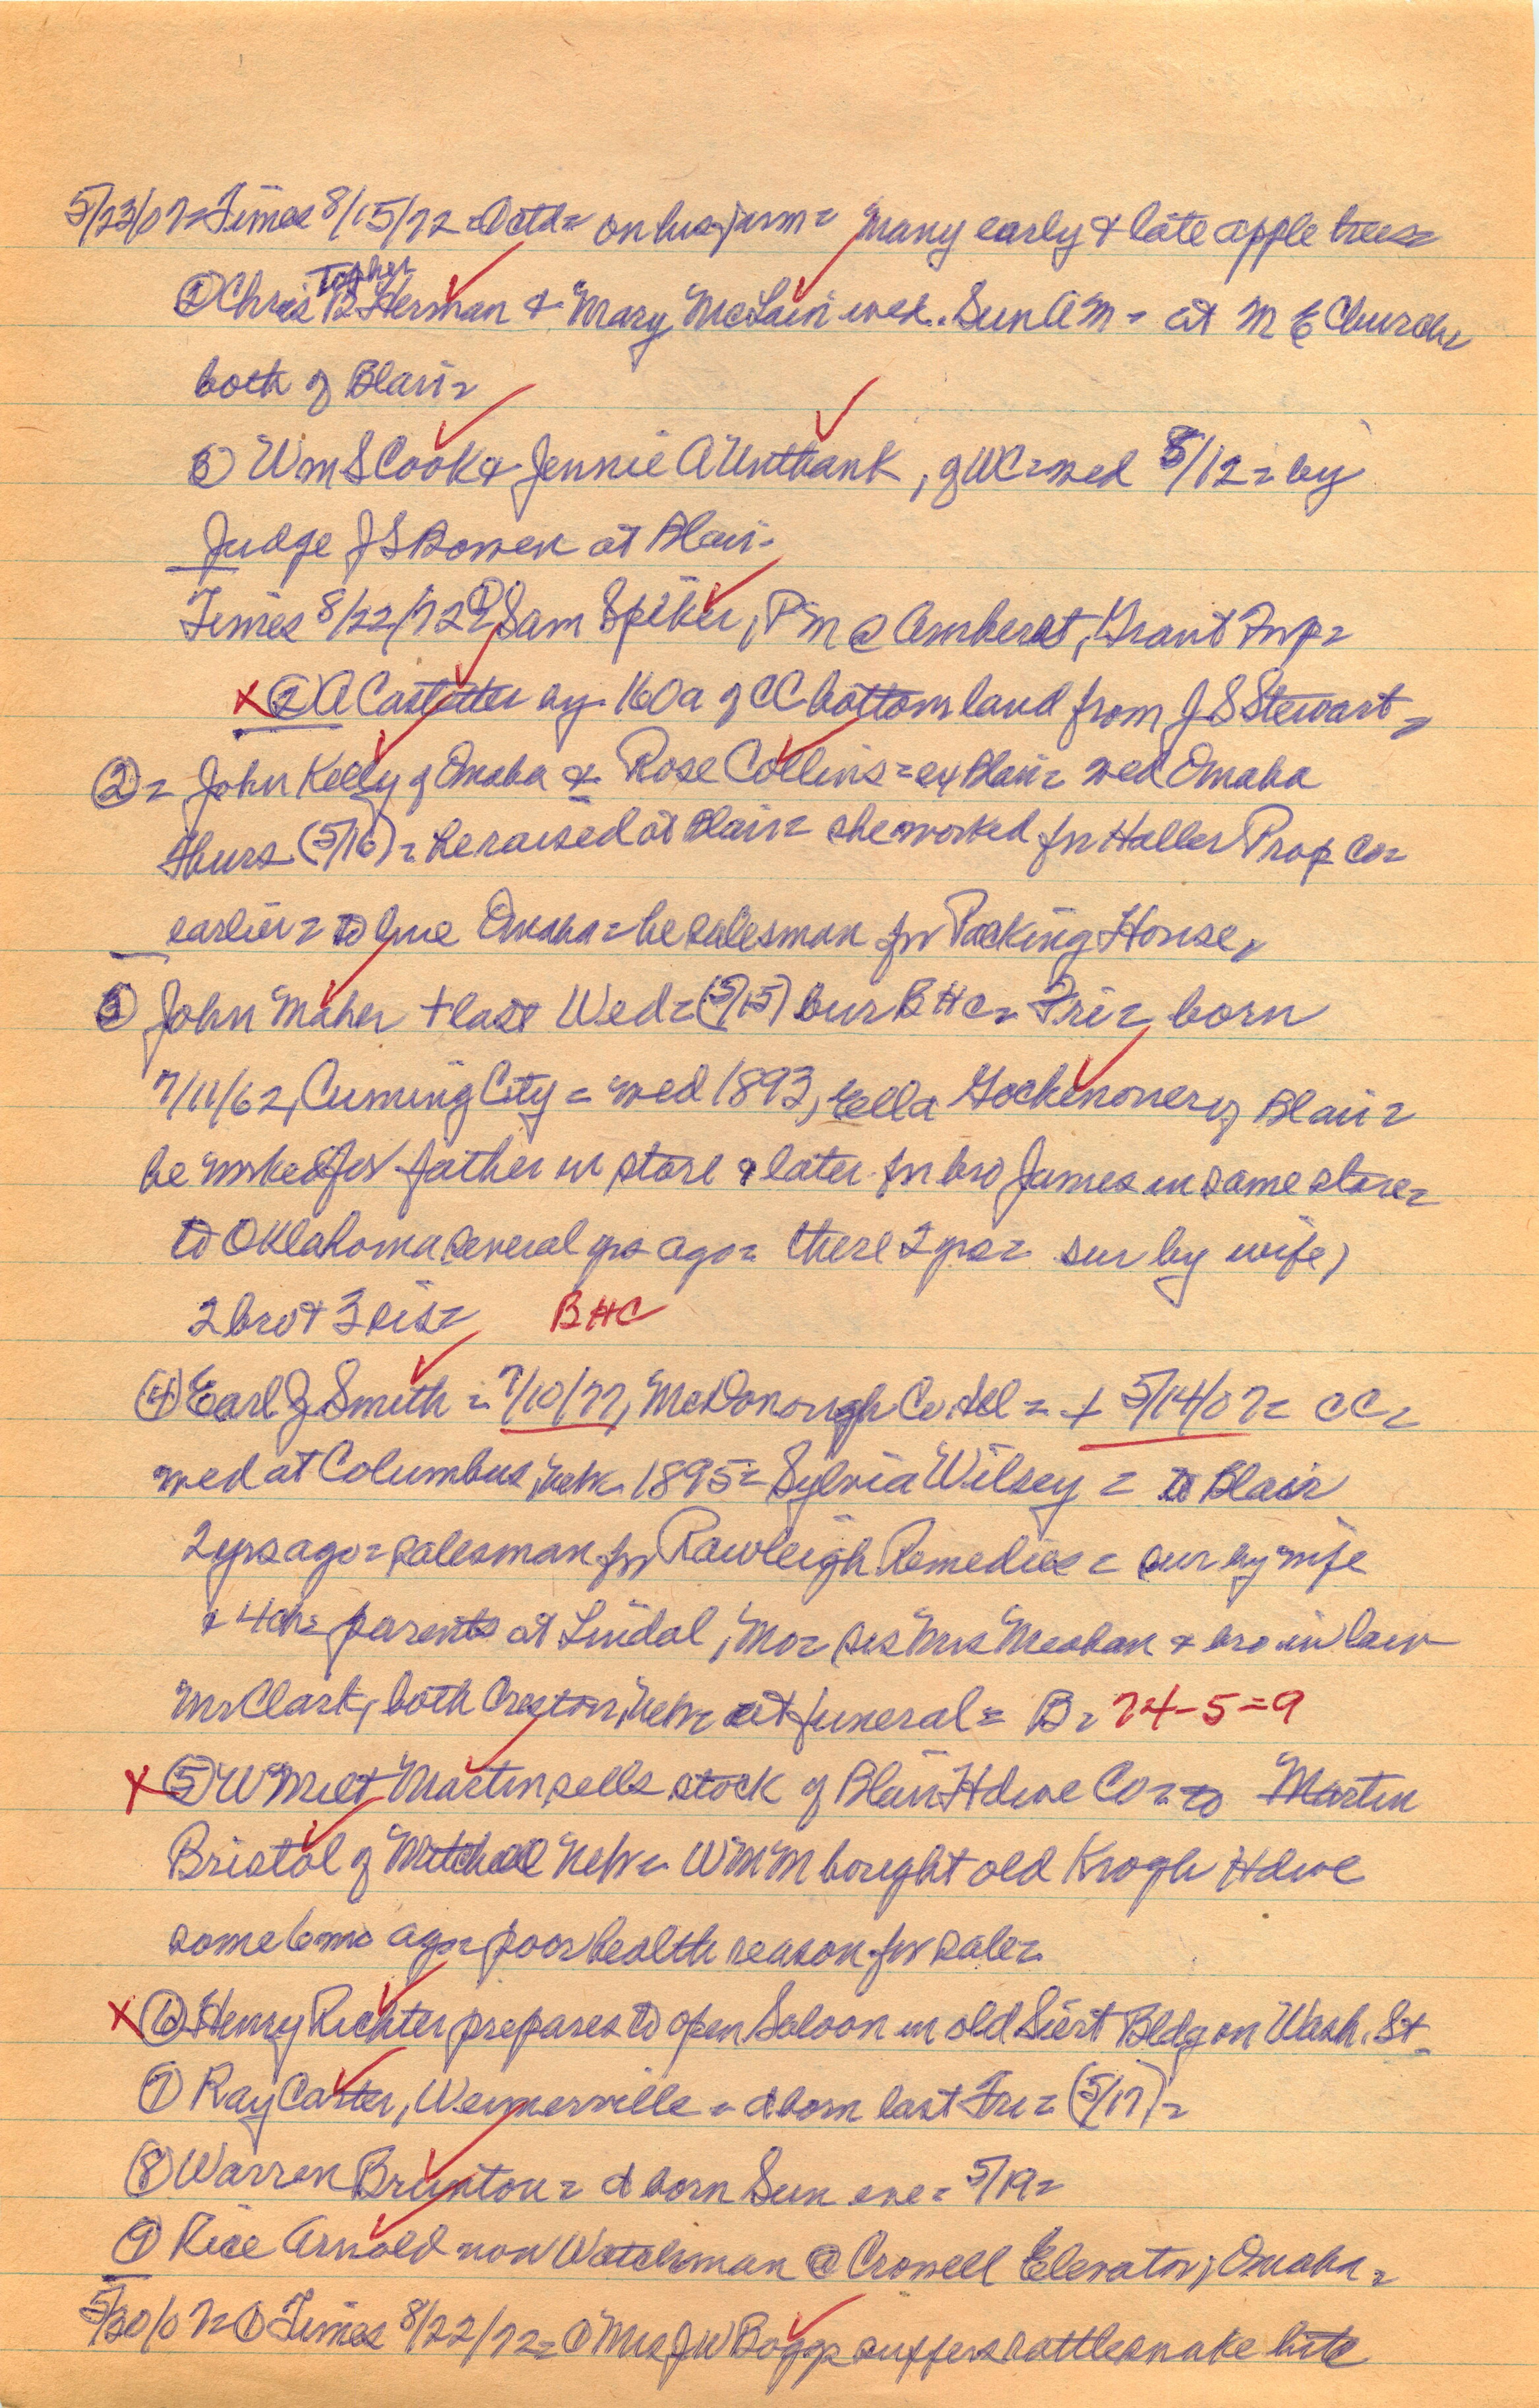 5/23/07= Times 8/15/72 = Contd= on his farm= many early & late apple trees=
② Chris Topher B Herman & Mary McLain wed. Sun AM = at M E Church=
both of Blair=
③ Wm S Cook & Jennie A Unthank, of WC= wed 8/12= by
Judge J S Bowen at Blair.
Times 8/22/72= ① Sam Spiker, P M @ Amherst, Grant Twp=
X ② A Castetter by 160a of CC bottom land from J S Stewart=
②= John Kelly of Omaha & Rose Collins= ex Blair= wed Omaha
thurs (5/16)= he raised at Blair= she worked for Haller Prop Co=
earlier= to live Omaha= he salesman for Packing House=
③ John Maher + last Wed= (5/15) bur B H C= Fri= born
7/11/62, Cuming City= wed 1893, Ella Gockenouer of Blair=
he worked for father in store & later for bro James in same store=
to Oklahoma several yrs ago= there 2 yrs= sur by wife,
2 bro & 3 sis= BHC
④ Earl J Smith= 7/10/77, McDonough Co. Ill= + 5/14/07= CC=
wed at Columbus, Nebr. 1895= Sylvia Wilsey= to Blair
2 yrs ago= salesman for Rawleigh Remedies= sur by wife
& 4 ch= parents at Lindal, Mo= sis Mrs Meahan & bro in law
Mr Clark, both Creston, Nebr= at funeral= B= 74-5=9
X ⑤ W Milt Martin sells stock of Blair Hdwe Co= to Martin
Bristol of Mitchell Nebr= W M M bought old Krogh Hdwe
some 6 mo ago= poor health reason for sale=
X ⑥ Henry Richter prepares to open Saloon in old Siert Bldg on Wash. St.
⑦ Ray Carter, Weimerville= d born last Fri= (5/17)=
⑧ Warren Brunton= d born Sun eve= 5/19=
⑨ Rice Arnold now Watchman @ Crowell Elevator, Omaha=
5/30/07= ① Times 8/22/72= ① Mrs J W Boggs suffers rattlesnake bite